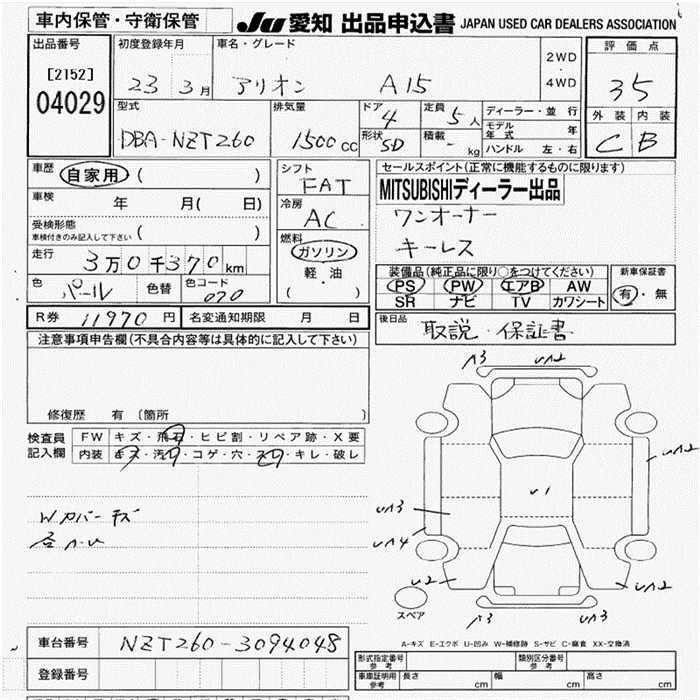 車内保管・守衛保管
JU 愛知 出品申込書 JAPAN USED CAR DEALERS ASSOCIATION
出品番号
[2152]
04029
初度登録年月
23 3月
車名・グレード
アリオン A15
2WD
・
4WD
評価点
35
外装 内装
C B
型式
DBA-NZT260
排気量
1500cc
ドア
4
形状
SD
定員
5人
積載
- kg
ディーラー・並行
モデル年式 年
ハンドル 左・右
車歴
自家用 ( )
車検
年 月( 日)
受検形態
車検付きのみ記入して下さい ( )
走行
3万0千370km
色
パール
色替
色コード
070
シフト
FAT
冷房
AC
燃料
ガソリン
軽・油
( )
セールスポイント(正常に機能するものに限ります)
MITSUBISHIディーラー出品
ワンオーナー
キーレス
装備品(純正品に限り○をつけてください)
PS PW エアB AW
SR ナビ TV カワシート
新車保証書
有・無
R券 11970円
名変通知期限 月 日
後日品
取説・保証書
注意事項申告欄(不具合内容等は具体的に記入して下さい)
修復歴 有 〔箇所
検査員記入欄
FW キズ・飛石・ヒビ割・リペア跡・X要
内装 キズ・汚れ・コゲ・穴・スレ・キレ・破レ
Wカバーキズ
A3
UA2
UA2
U1
UA3
UA4
U2
UA2
A3
UA3
スペア
A-キズ E-エクボ U-凹み W-補修跡 S-サビ C-腐食 XX-交換済
車台番号
NZT260-3094048
登録番号
形式指定番号参考
類別区分番号参考
車庫証明用参考
長さ cm
幅 cm
高さ cm